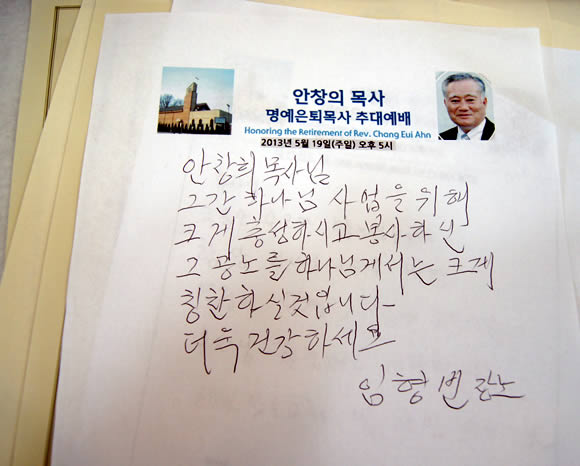 안창의 목사
명예은퇴목사 추대예배
Honoring the Retirement of Rev. Chang Eui Ahn
2013년 5월 19일(주일) 오후 5시
안창희 목사님
그간 하나님 사업을 위해
크게 충성하시고 봉사하신
그 공노를 하나님께서는 크게
칭찬 하실것입니다
더욱 건강하세요
임형빈 장노